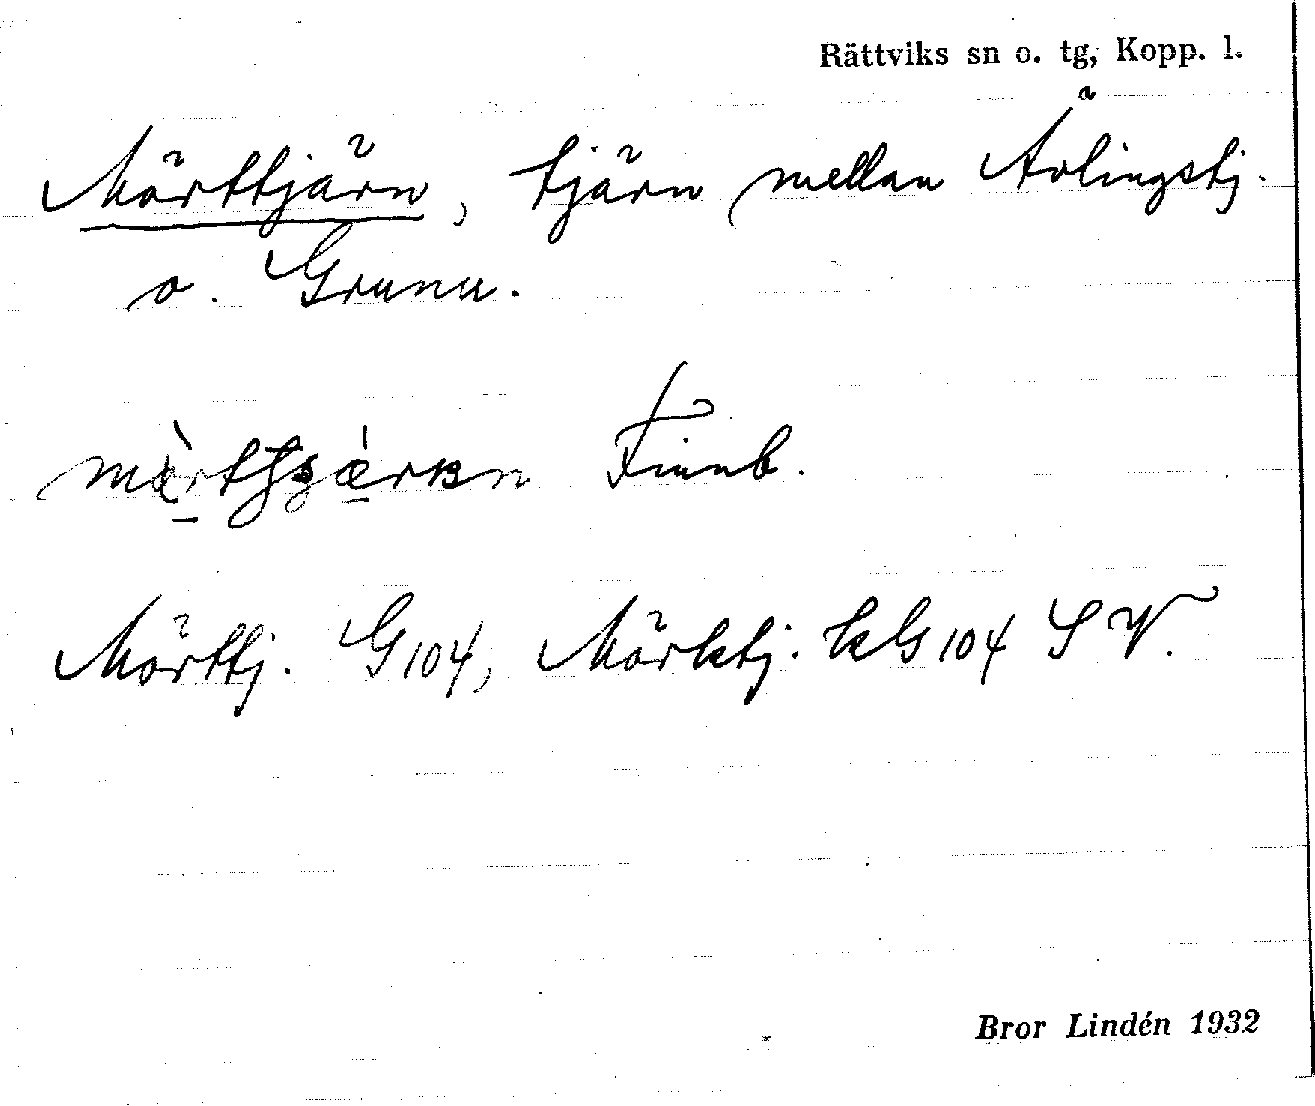 Rättviks sn o. tg, Kopp. l.
Mörttjärn, tjärn mellan Åvlingstj.
o. Grunu.
Finnb.
Mörttj. G 104, Mörktj. kG 104 S V.
Bror Lindén 1932